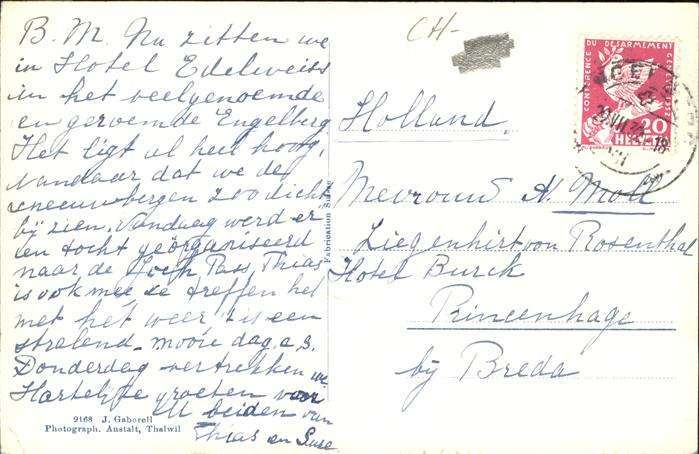 B. M. Nu zitten we
in Hotel Edelweiss
in het veelgenoemde
en geroemde Engelberg
Het ligt al heel hoog,
vandaar dat we de
sneeuwbergen zoo dicht
bij zien. Vandaag werd er
en tocht georganiseerd
naar de Joch Pass, Thias
is ook mee ze treffen het
met het weer, t is een
stralend mooie dag, a.s.
Donderdag vertrekken we
Hartelijke groeten voor
U beiden van
Thias en Suse
2168 J. Gaberell
Photograph. Anstalt, Thalwil
Fabrication Suisse
CH-
CONFERENCE DU DESARMEMENT GENEVE
20
HELVETIA
Holland
Mevrouw A. Moll
Ziegenhirt von Rosenthal
Hotel Burck
Princenhage
bij Breda